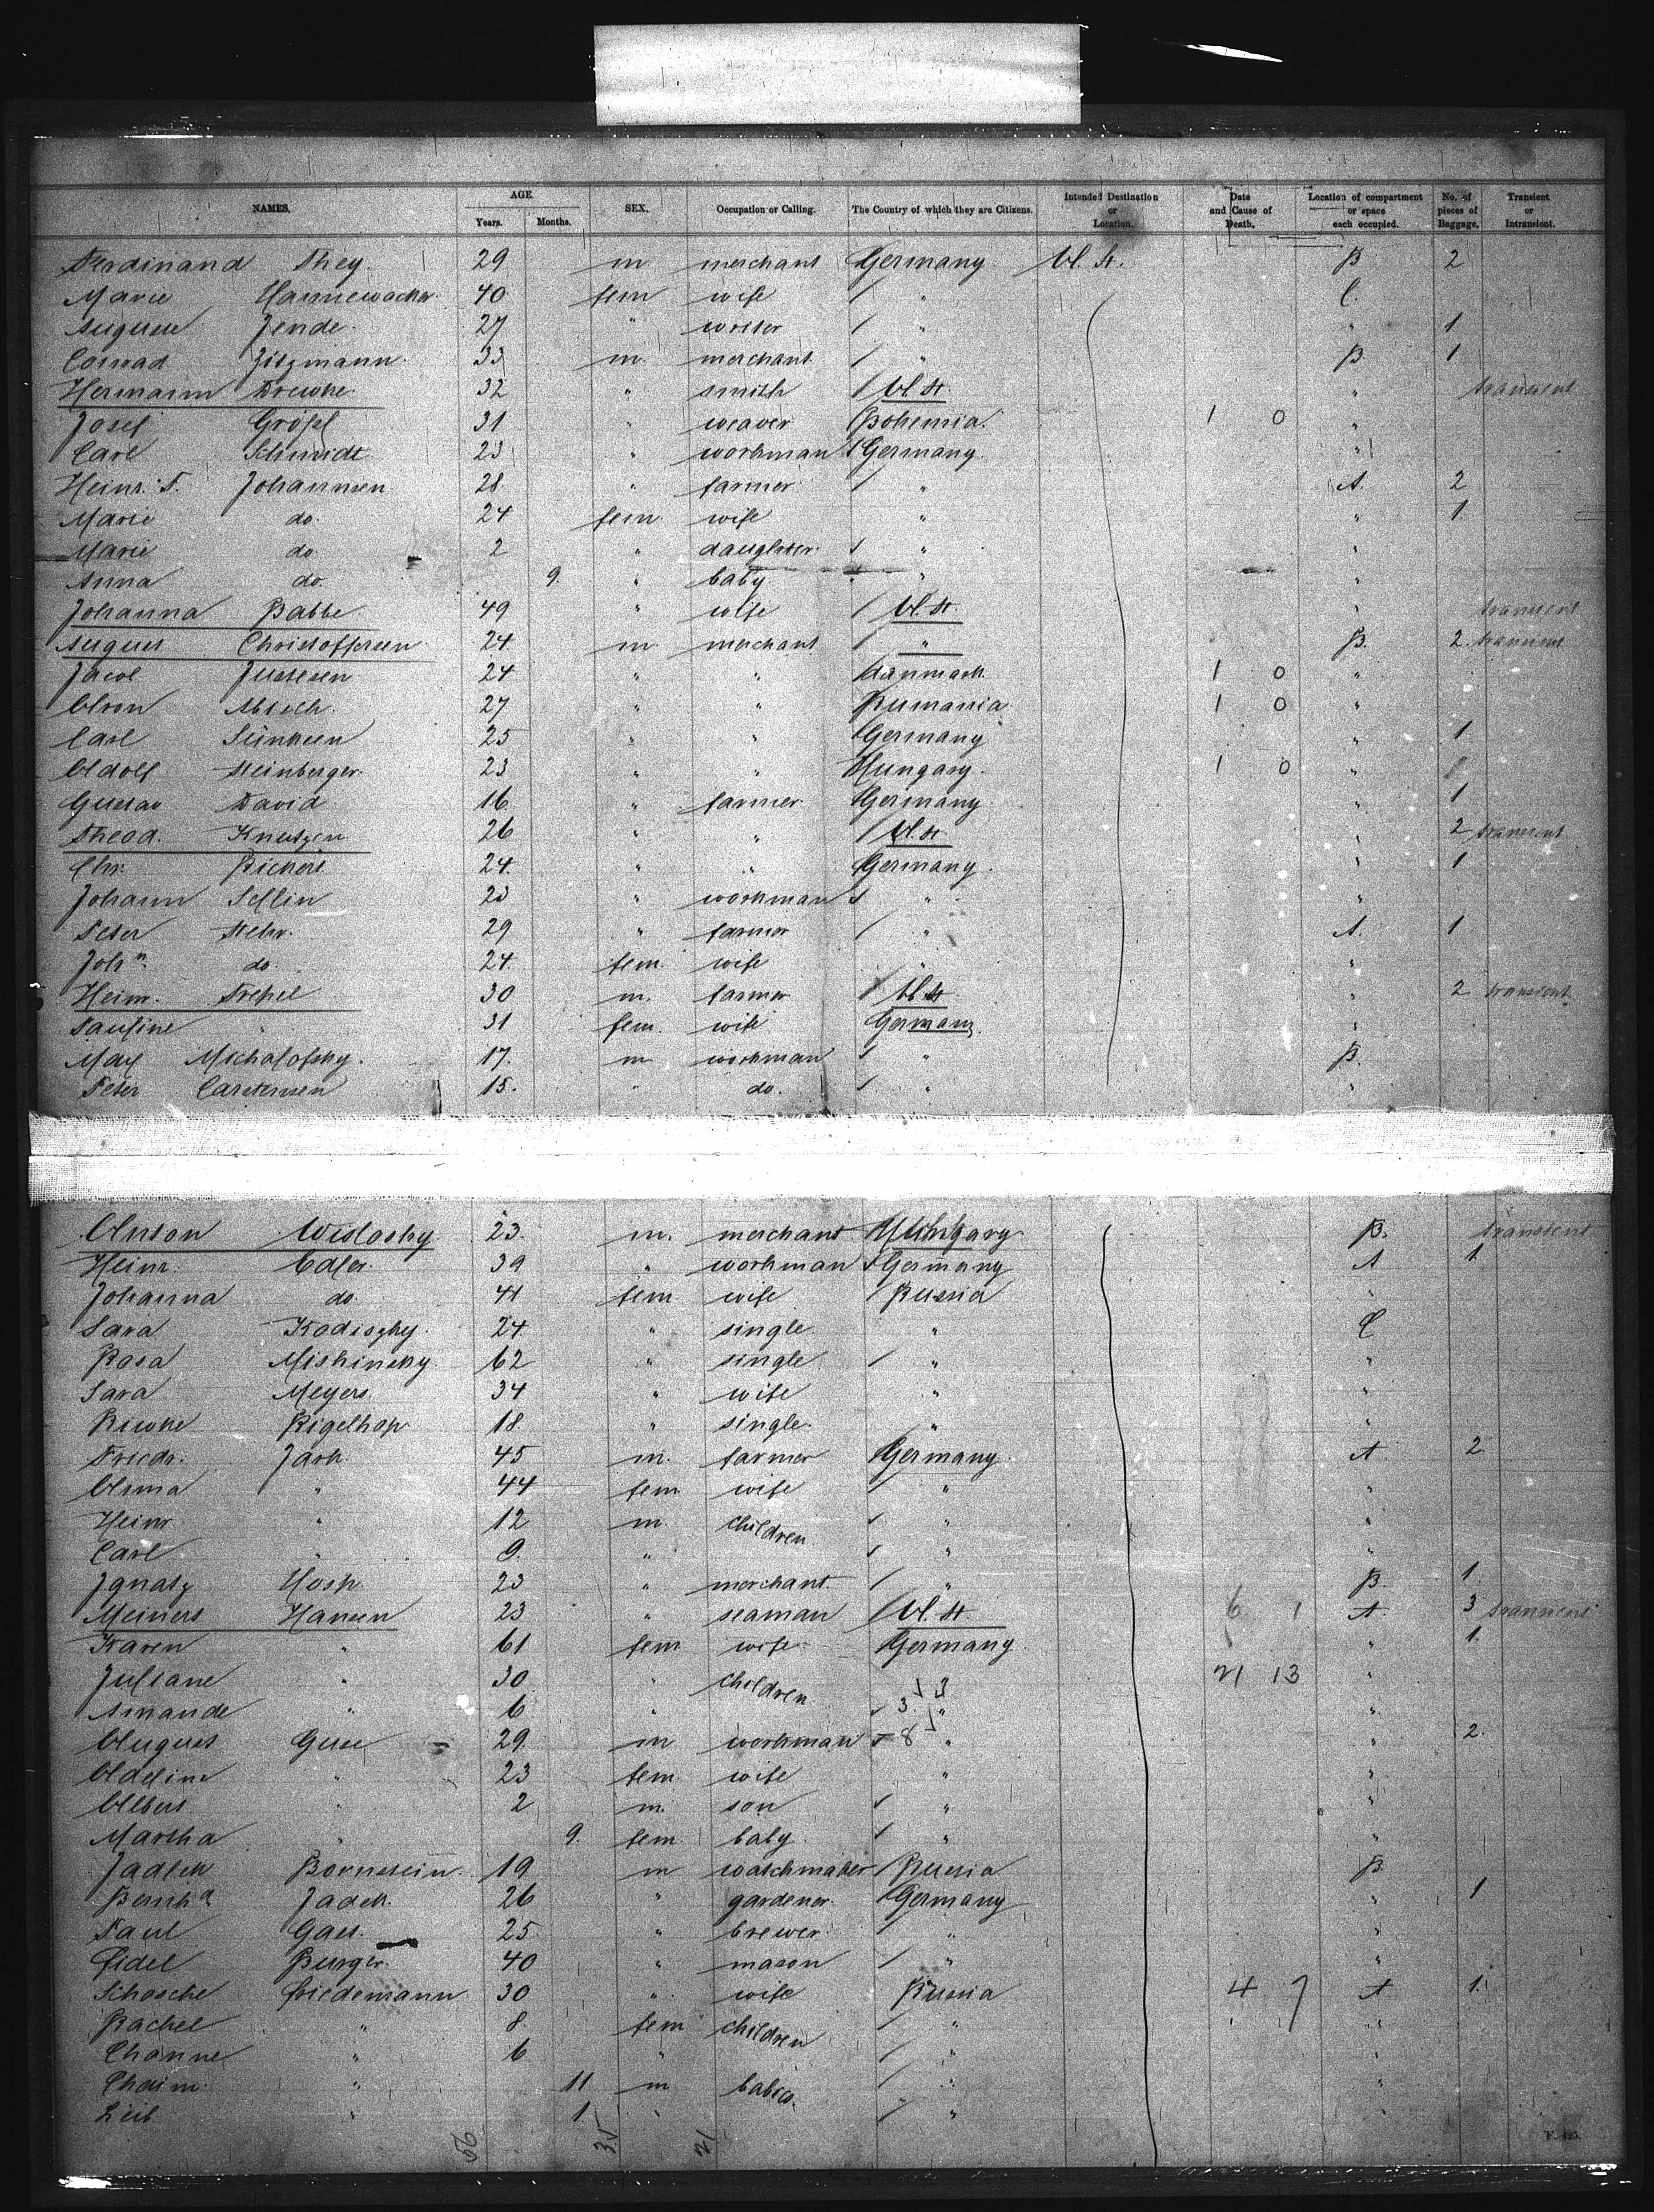 NAMES. AGE. Years. Months. SEX. Occupation or Calling. The Country of which they are Citizens. Intended Destination or Location. Date and Cause of Death. Location of compartment or space each occupied. No. of pieces of Baggage. Transient or Intransient.
Ferdinand They. 29 m merchant Germany U. St. B 2
Marie Hannewacker. 40 fem wife / " C.
Auguste Jende. 27 " / " " 1
Conrad Zitzmann. 33 m. merchant / " B 1
Hermann Drewke. 32 " smith / U. St. " transient
Josef 31 " weaver Bohemia. 1 0 "
Carl Schmidt 23 " workman Germany. "
Heinr. P. Johannsen 28. " farmer / " A. 2
Marie do. 24 fem wife " " 1.
Marie do 2 " daughter. " "
Anna do. 9. " baby " "
Johanna Babbe 49 " wife / U. St. " transient
August Christoffersen 24 m. merchant / " B. 2. transient
Jacob Justesen 24 " " Danmark. 1 0 "
Abisch. 27 " " Rumania 1 0 "
Carl Sünksen 25 " " Germany " 1
Adolf Steinberger. 23 " " Hungary. 1 0 "
Gustav David. 16. " farmer Germany. " 1
Theod. Knutzen 26 " " / U. St " 2 transient
Chr. Rickert 24. " " Germany. " 1
Johann Sellin 23 " workman " "
Peter Stehr. 29 " farmer / " A. 1
Joh n. do. 24. fem. wife " "
Heinr. 30 m. farmer / U. St " 2 transient
Pauline " 31 fem. wife Germany. "
Max Michalofsky. 17. m workman " B.
Peter Carstensen 15. " do. " "
Anton Wislosky 23. m. merchant Hungary B. transient
Heinr. Edler. 39 " workman Germany A 1
Johanna do. 41 fem wife / Russia "
Sara Kodiszky. 24 " single. " C
Rosa Mishinsky 62 " single / " "
Sara Meyers. 34 " wife " "
Riwke Rigelhop 18. " single. " "
Friedr. Jark. 45 m. farmer Germany. A 2
" 44 fem wife / " "
Heinr. " 12 m. children " "
Carl " 9. " " "
Ignatz Hosp 23 " merchant. / " B. 1.
Meinert Hansen 23 " seaman / U. St. 6 1 A. 3 transient
Karen " 61 fem wife. Germany. " 1.
Juliane " 30 " children " 21 13 "
Amande " 6 " 3 " "
August Guse 29. m workman 8 " " 2.
Adeline " 23 fem wife " "
Albert " 2 m. son " "
Martha " 9. fem baby. " "
Bornstein. 19 m watchmaker / Russia B.
Bernh d. Jadek. 26 " gardener. Germany " 1
Paul 25 " brewer. / " "
Fidel Burger. 40 " mason / " "
Schosche Friedemann. 30 " wife Russia 4 7 A 1.
Rachel " 8. fem children / " "
Channe " 6 " / " "
Chaim. " 11 m babies. / " "
Leib " 1 " / " "
56 35 21
F. 425.